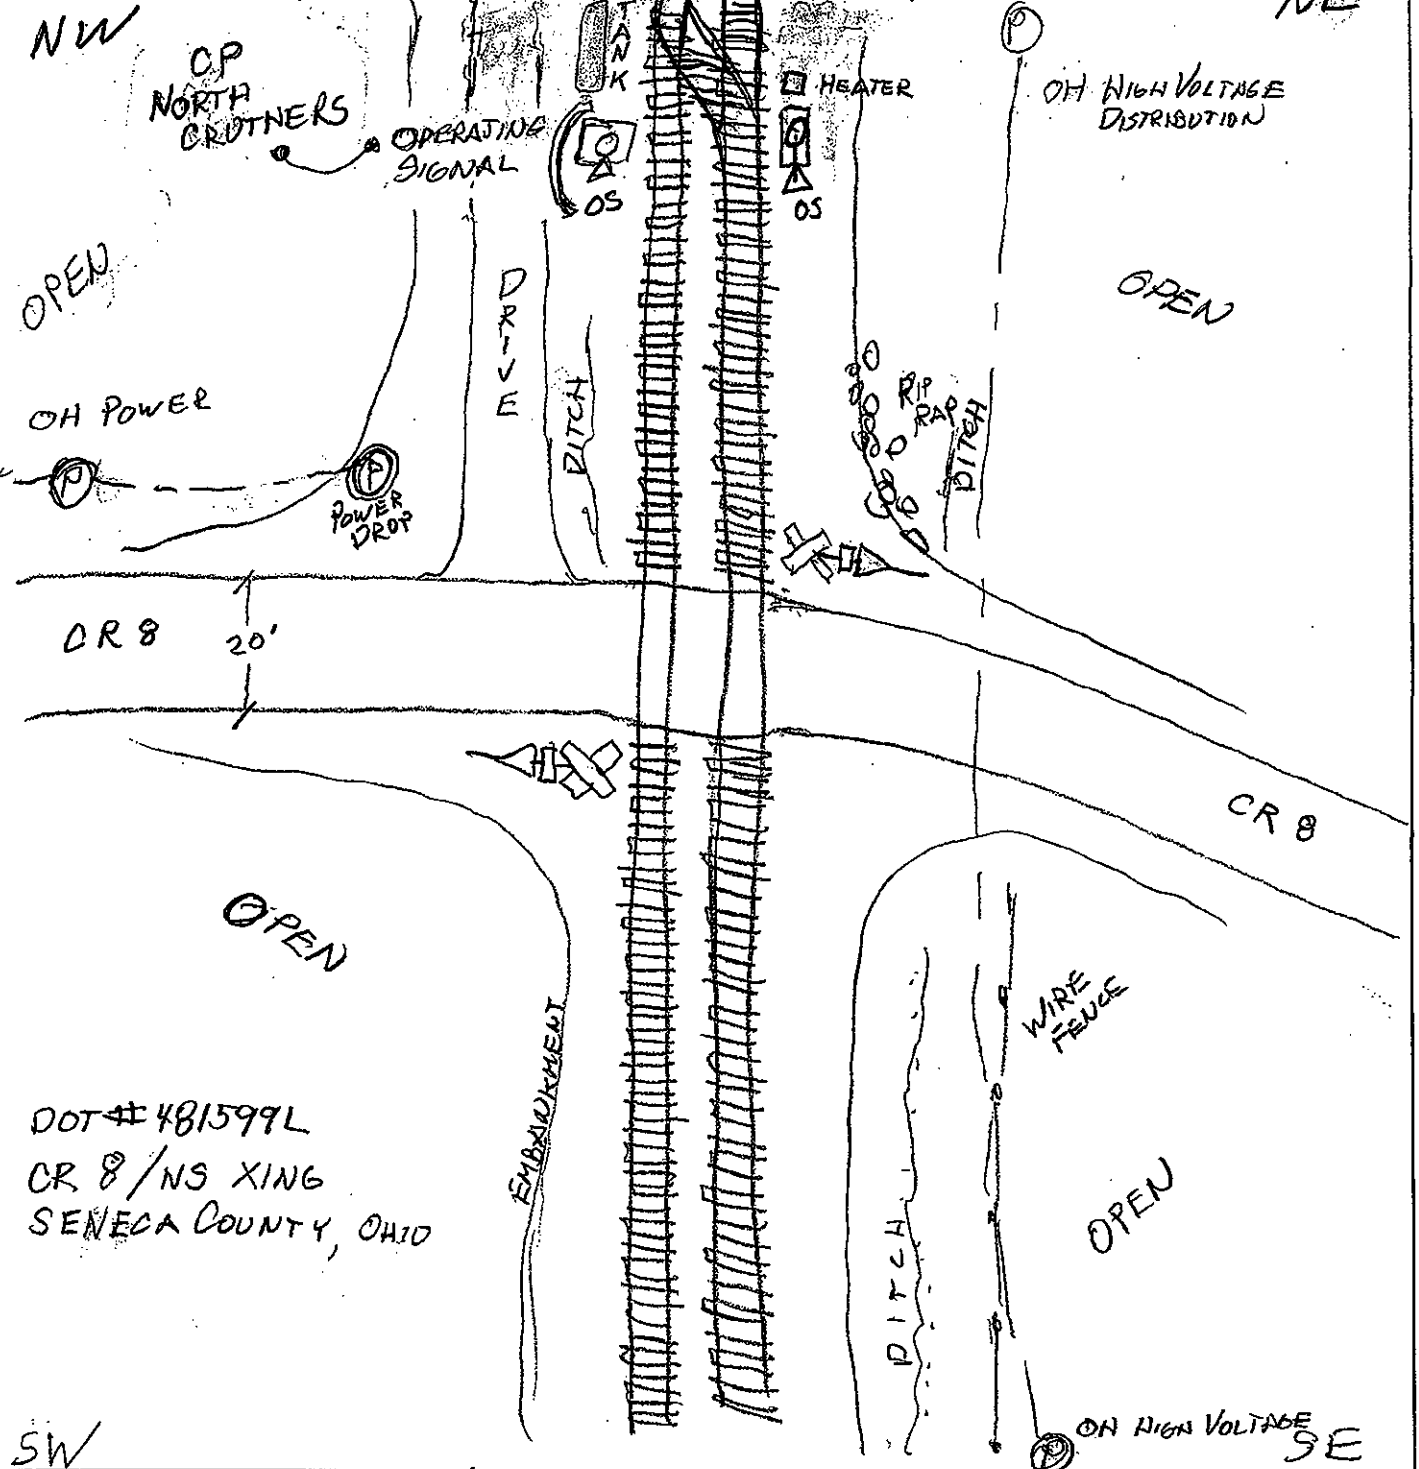 NW
NE
CP
NORTH
CRUTNERS
OPERATING
SIGNAL
TANK
OS
HEATER
OS
P
OH HIGH VOLTAGE
DISTRIBUTION
OPEN
OPEN
DRIVE
DITCH
RIP
RAP
DITCH
OH POWER
P
P
POWER
DROP
CR 8
20'
CR 8
OPEN
EMBANKMENT
WIRE
FENCE
DOT# 481599L
CR 8/NS XING
SENECA COUNTY, OHIO
OPEN
DITCH
SW
P
OH HIGH VOLTAGE
SE